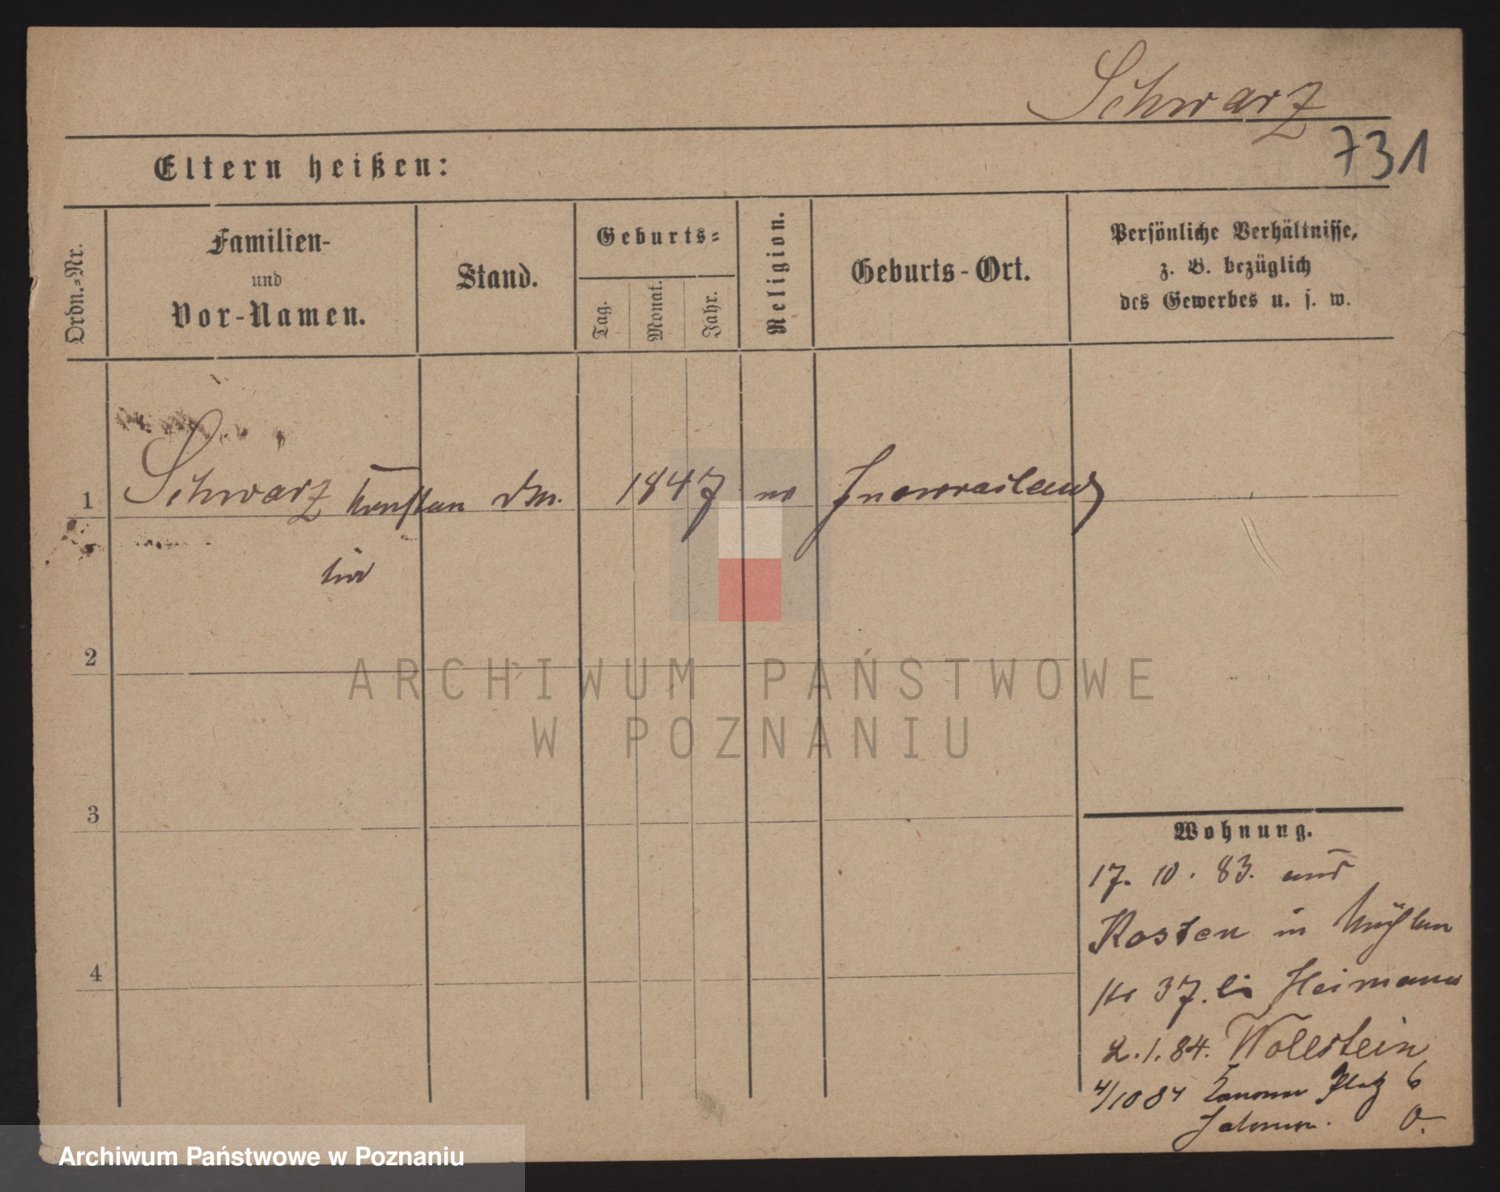 Schwarz
731
Eltern heißen:
Ordn.-Nr.
Familien-
und
Vor-Namen.
Stand.
Geburts-
Tag.
Monat.
Jahr.
Religion.
Geburts-Ort.
Persönliche Verhältnisse,
z. B. bezüglich
des Gewerbes u. s. w.
1 Schwarz 1847
2
3
4
Wohnung.
17. 10. 83. aus
Kosten in
37. bei Heimann
2. 1. 84. Wollstein
4/10 84 Platz 6
ARCHIWUM PAŃSTWOWE
W POZNANIU
Archiwum Państwowe w Poznaniu